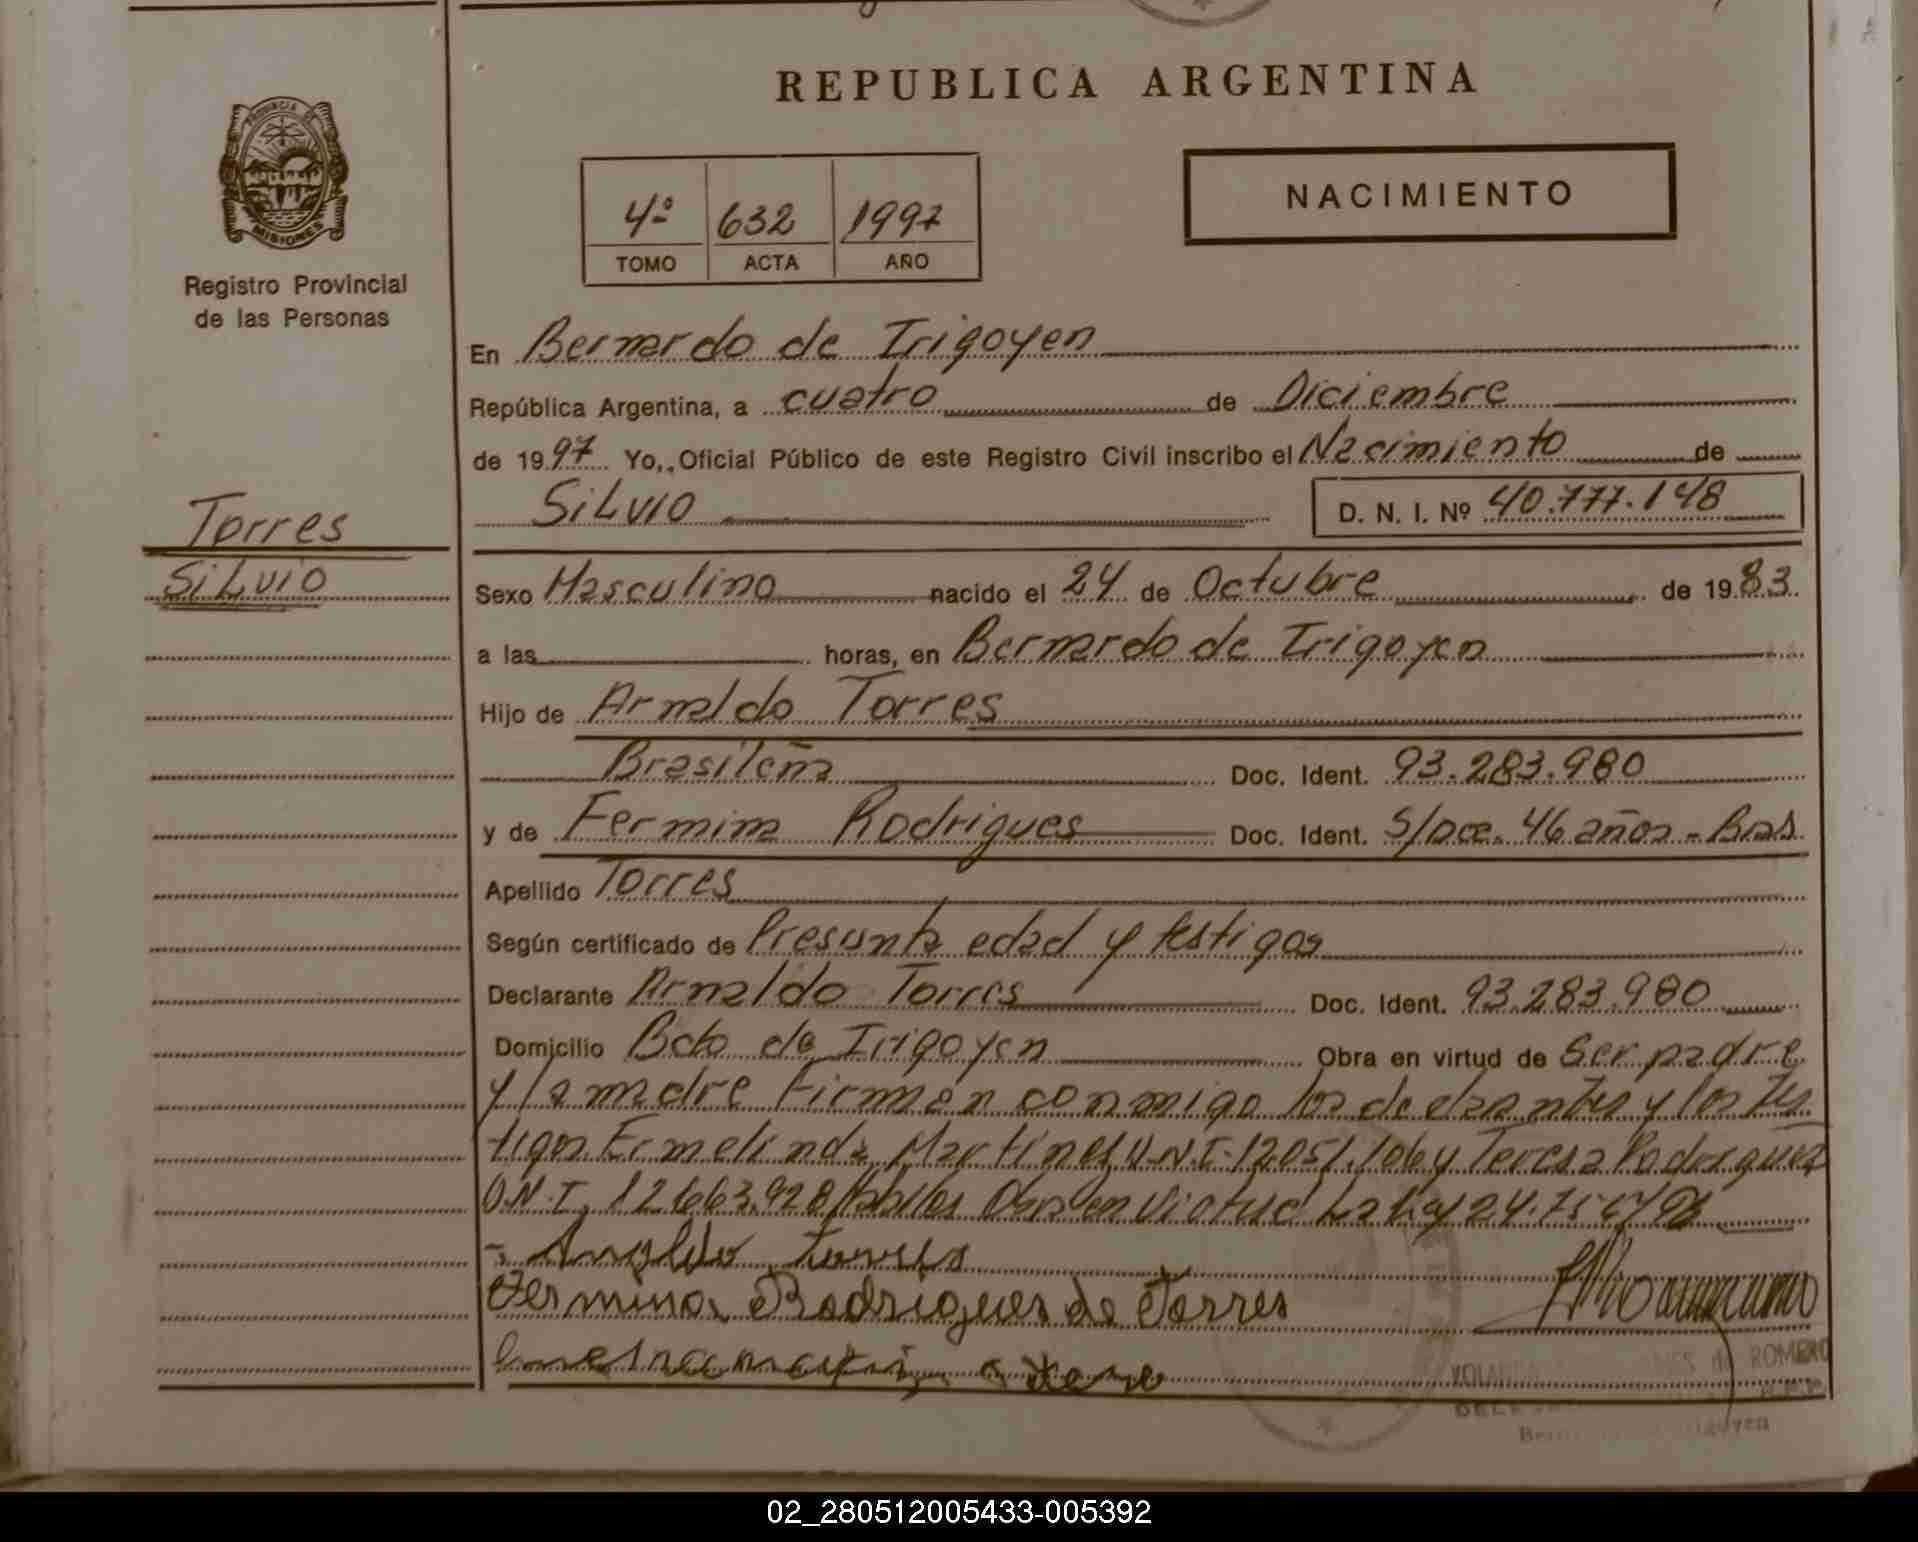 REPUBLICA ARGENTINA
PROVINCIA DE
MISIONES
Registro Provincial
de las Personas
4º 632 1997
TOMO ACTA AÑO
NACIMIENTO
En Bernardo de Irigoyen
República Argentina, a cuatro de Diciembre
de 1997 Yo, Oficial Público de este Registro Civil inscribo el Nacimiento de
SiLvio D. N. I. Nº 40.777.148
Torres
SiLvio
Sexo Masculino nacido el 24 de Octubre de 1983
a las horas, en Bernardo de Irigoyen
Hijo de Arnaldo Torres
Brasileña Doc. Ident. 93.283.980
y de Fermina Rodrigues Doc. Ident. S/Doc. 46 años - Bras.
Apellido Torres
Según certificado de Presunta edad y testigos
Declarante Arnaldo Torres Doc. Ident. 93.283.980
Domicilio Bdo de Irigoyen Obra en virtud de Ser padre
y la madre Firman conmigo los declarantes y los tes
tigos Ermelinda Martines D.N.I. 12.051.106 y Teresa Rodriguez
D.N.I. 12.663.928 Obra en Virtud La Ley
Arnaldo Torres
Fermina Rodrigues de Torres
de ROMERO
02_280512005433-005392